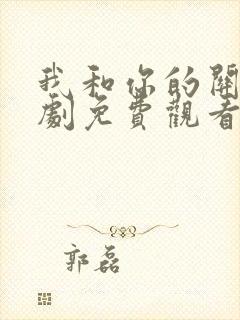 我和你的關
劇免費觀看
郭磊